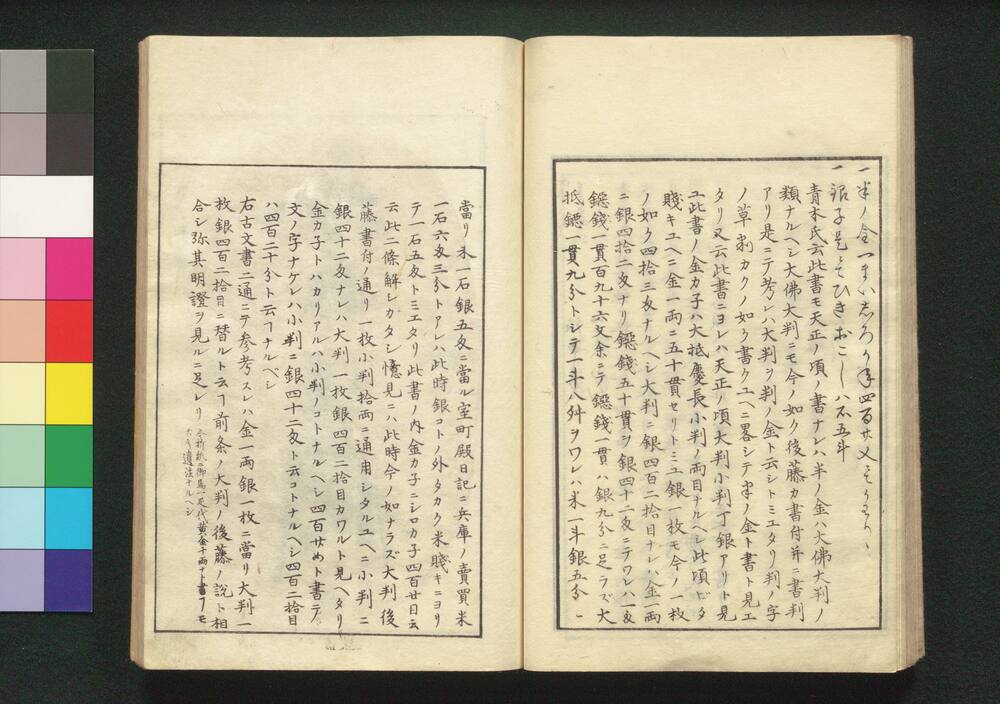 一半ノ金一まい志ろかね四百廿文め
一銀子是をひきおこし八石五斗
青木氏云此書モ天正ノ項ノ書ナレハ半ノ金ハ大佛大判ノ
類ナルヘシ大佛大判ニモ今ノ如ク後藤カ書付并ニ書判
アリ是ニテ考レハ大判ヲ判ノ金ト云シトミエタリ判ノ字
ノ草カクノ如ク書クユヘニ畧シテ半ノ金ト書ト見エ
タリ又云此書ニヨレハ天正ノ項大判小判丁銀アリト見
ユ此書ノ金カ子ハ大抵慶長小判ノ両目ナルヘシ此項ビタ
賤キユヘニ金一両ニ五十貫セリトミユ銀一枚モ今ノ一枚
ノ如ク四拾三匁ナルヘシ大判ニ銀四百二拾目ナレハ金一両
ニ銀四拾二匁ナリ鐚錢五十貫ヲ銀四十二匁ニテワレハ一匁
鐚錢一貫百九十六文余ニテ鐚錢一貫ハ銀九分ニ足ラズ大
抵鐚一貫九分トシテ一斗八舛ヲワレハ米一斗銀五分ニ
當リ米一石銀五匁ニ當ル室町殿日記ニ兵庫ノ賣買米
一石六匁三分トアレハ此時銀コトノ外タカク米賤キニヨリ
テ一石五匁トミエタリ此書ノ内金カ子ニシロカ子四百廿日云
云此二條解シガタシ憶見ニハ此時今ノ如ナラズ大判後
藤書付ノ通リ一枚小判拾両ニ通用シタルユヘニ小判ニ
銀四十二匁ナレハ大判一枚銀四百二拾目カワルト見ヘタリ
金カ子トハカリアルハ小判ノコトナルヘシ四百廿めト書テ
文ノ字ナケレハ小判ニ銀四十二匁ト云コトナルヘシ四百二拾目
ハ四百二十分ト云フナルベシ
右古文書二通ニテ参考スレハ金一両銀一枚ニ當リ大判一
枚銀四百二拾目ニ替ルト云フ前条ノ大判ノ後藤ノ説ト相
合シ弥其明證ヲ見ルニ足レリ
御馬一疋代黄金十両ナト書フモ
遺法ナルヘシ